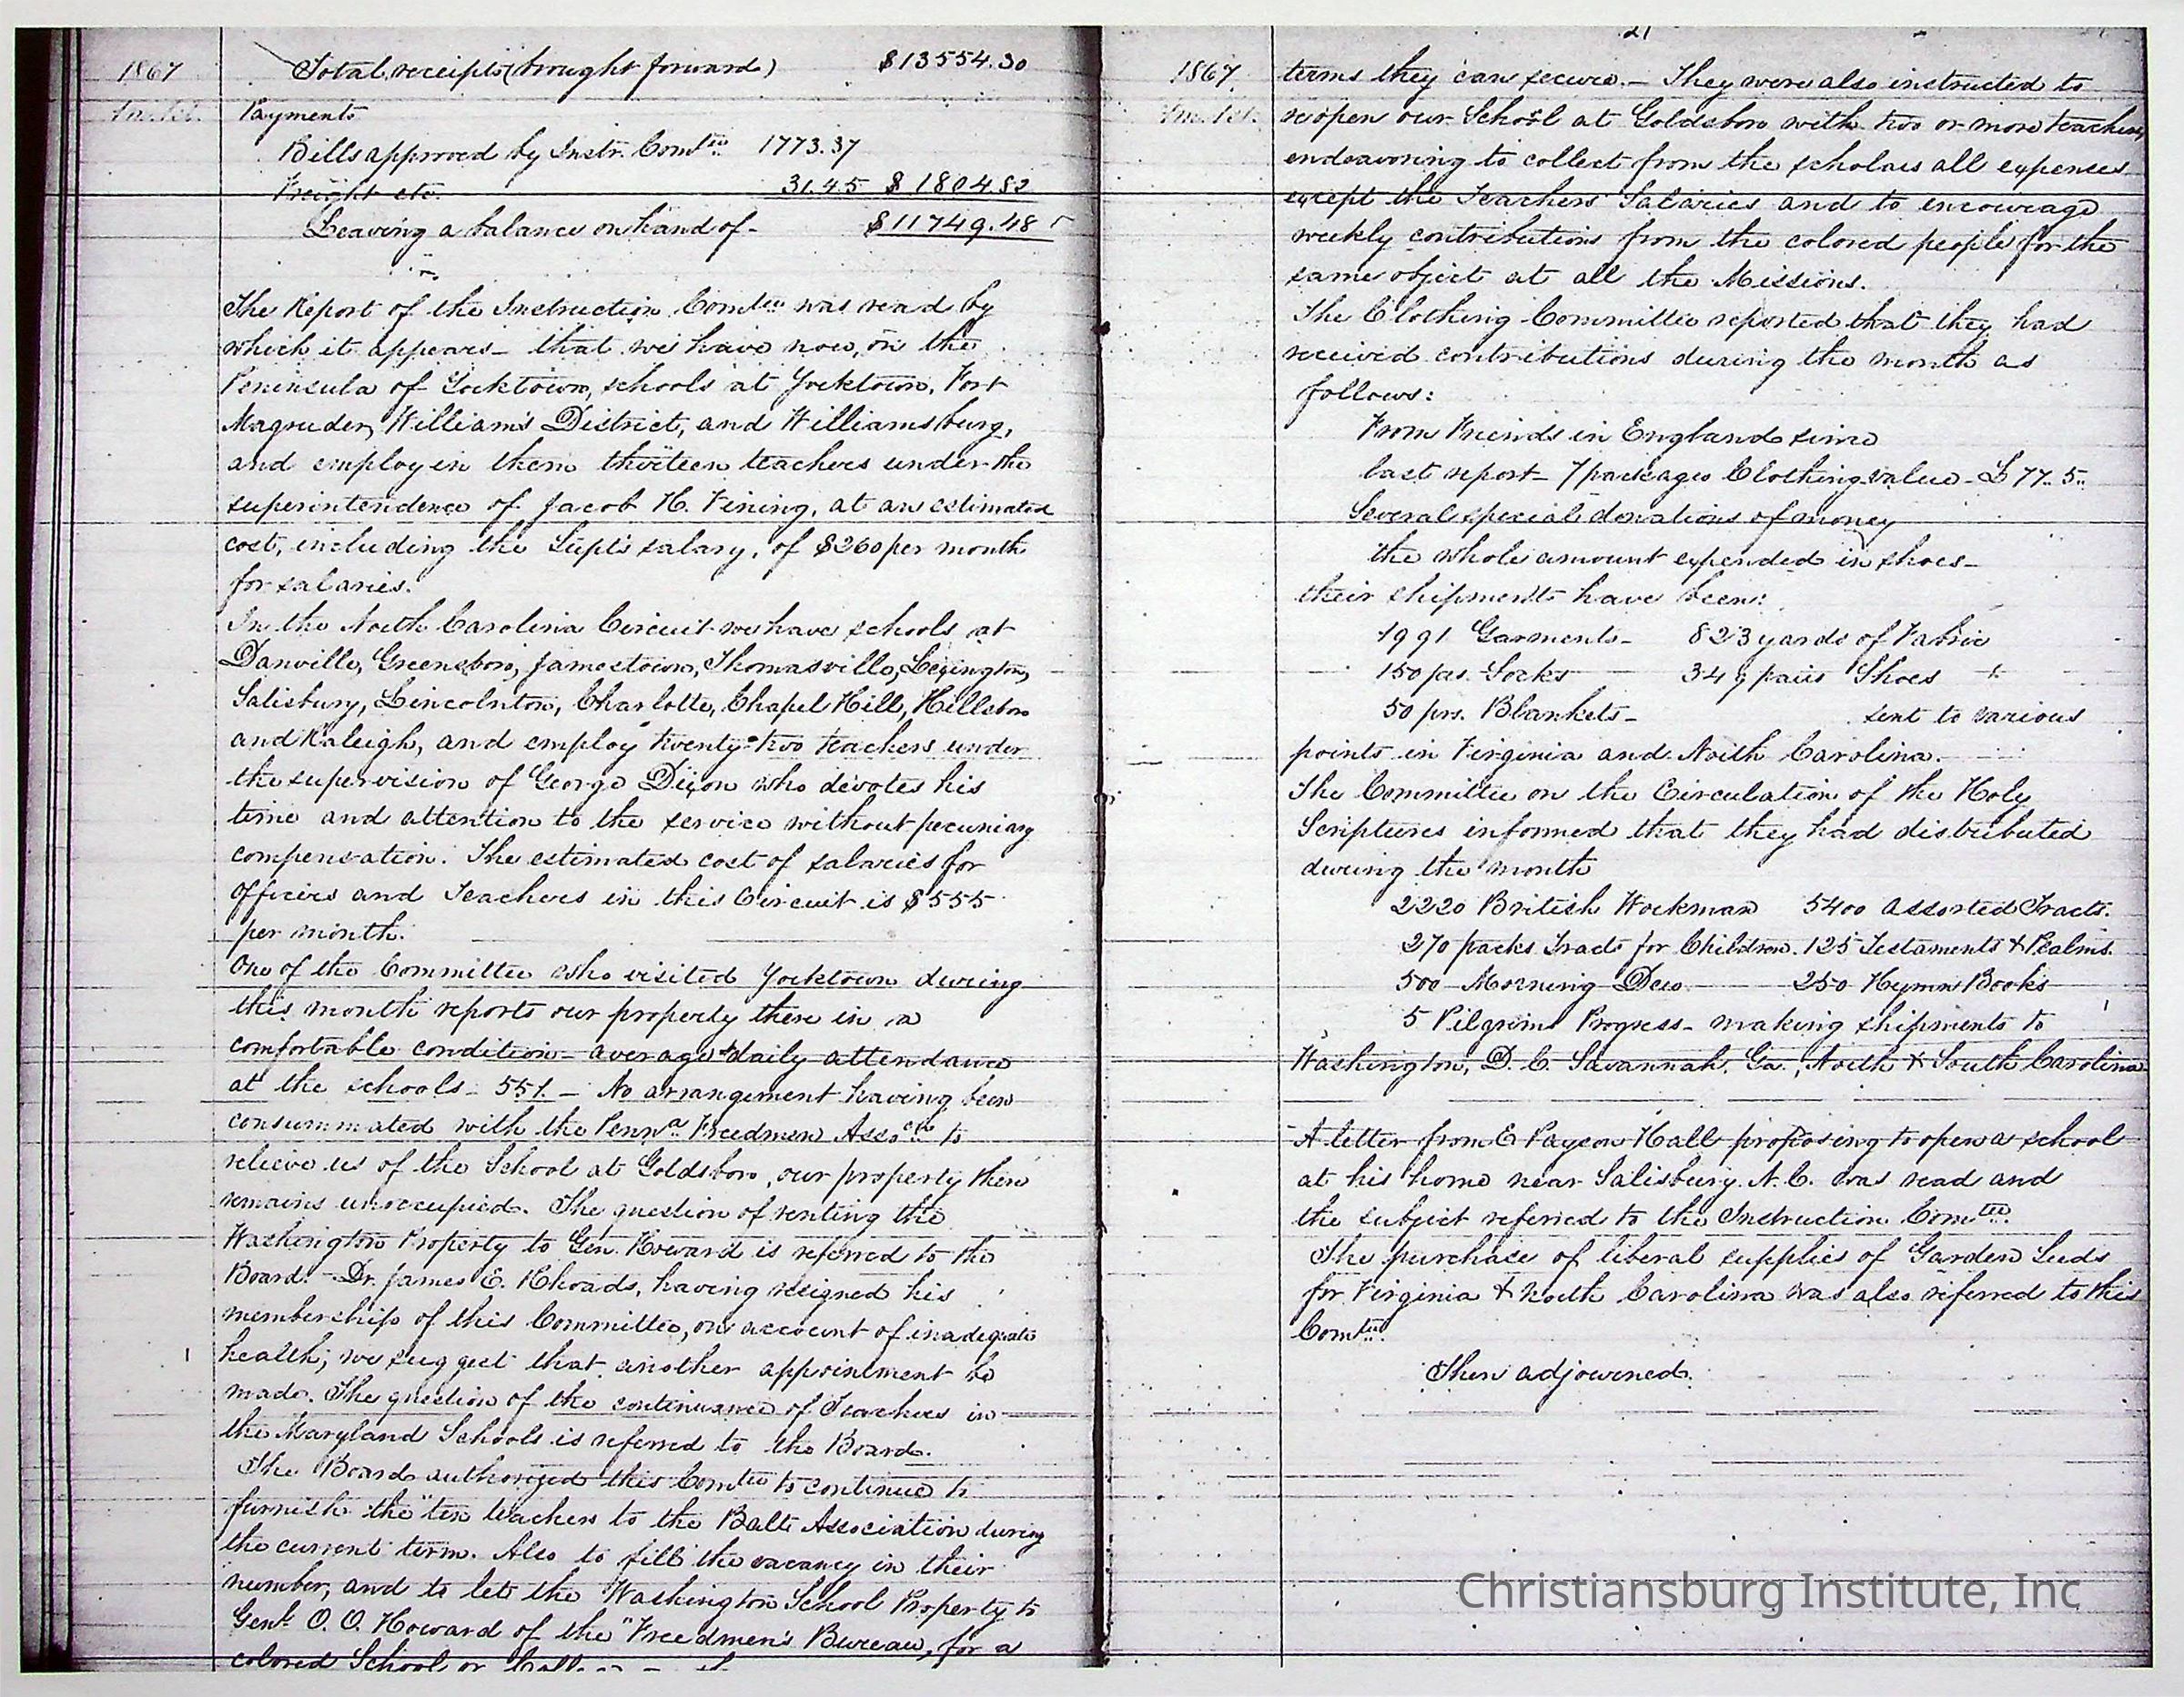 1867
Total receipts (brought forward) $13554.30
Payments
Bills approved by Instr. Comtee 1773.37
Freight etc. 31.45 $1804.82
Leaving a balance on hand of - $11749.48
The Report of the Instruction Comtee was read by
which it appears - that we have now, on the
Peninsula of Yorktown, schools at Yorktown, Fort
Magruder, William's District, and Williamsburg,
and employ in them thirteen teachers under the
superintendence of Jacob H. Vining, at an estimated
cost, including the Supt's salary, of $260 per month
for salaries.
In the North Carolina Circuit we have schools at
Danville, Greensboro, Jamestown, Thomasville, Lexington,
Salisbury, Lincolnton, Charlotte, Chapel Hill, Hillsboro
and Raleigh, and employ twenty-two teachers under
the supervision of George Dixon who devotes his
time and attention to the service without pecuniary
compensation. The estimated cost of salaries for
Officers and Teachers in this Circuit is $555
per month.
One of the Committee who visited Yorktown during
this month reports our property there in a
comfortable condition - average daily attendance
at the schools - 551. - No arrangement having been
consummated with the Penna Freedmen Assoctn to
relieve us of the School at Goldsboro, our property there
remains unoccupied. The question of renting the
Washington Property to Gen. Howard is referred to the
Board. - Dr. James E. Rhoads, having resigned his
membership of this Committee, on account of inadequate
health; we suggest that another appointment be
made. The question of the continuance of Teachers in
the Maryland Schools is referred to the Board.
The Board authorized this Comtee to continue to
furnish the ten teachers to the Balt. Association during
the current term. Also to fill the vacancy in their
number, and to let the Washington School Property to
Genl. O. O. Howard of the "Freedmen's Bureau, for a
colored School or
21
1867
terms they can secure. - They were also instructed to
reopen our School at Goldsboro with two or more teachers,
endeavoring to collect from the scholars all expenses
except the Teachers' Salaries and to encourage
weekly contributions from the colored people for the
same object at all the Missions.
The Clothing Committee reported that they had
received contributions during the month as
follows:
From Friends in England since
last report - 7 packages Clothing value - £77.. 5..
Several special donations of money
the whole amount expended in shoes -
their shipments have been:
1991 Garments - 823 yards of Fabric
150 prs. Socks pairs Shoes
50 prs. Blankets - sent to various
points in Virginia and North Carolina.
The Committee on the Circulation of the Holy
Scriptures informed that they had distributed
during the month
2220 British Workman 5400 Assorted Tracts.
270 packs Tracts for Children. 125 Testaments & Psalms.
500 Morning Dew 250 Hymn Books
5 Pilgrims Progress - making shipments to
Washington, D. C. Savannah, Ga., North & South Carolina
A letter from E Payson Hall proposing to open a school
at his home near Salisbury, N. C. was read and
the subject referred to the Instruction Comtee.
The purchase of liberal supplies of Garden Seeds
for Virginia & North Carolina was also referred to this
Comtee.
Then adjourned.
Christiansburg Institute, Inc